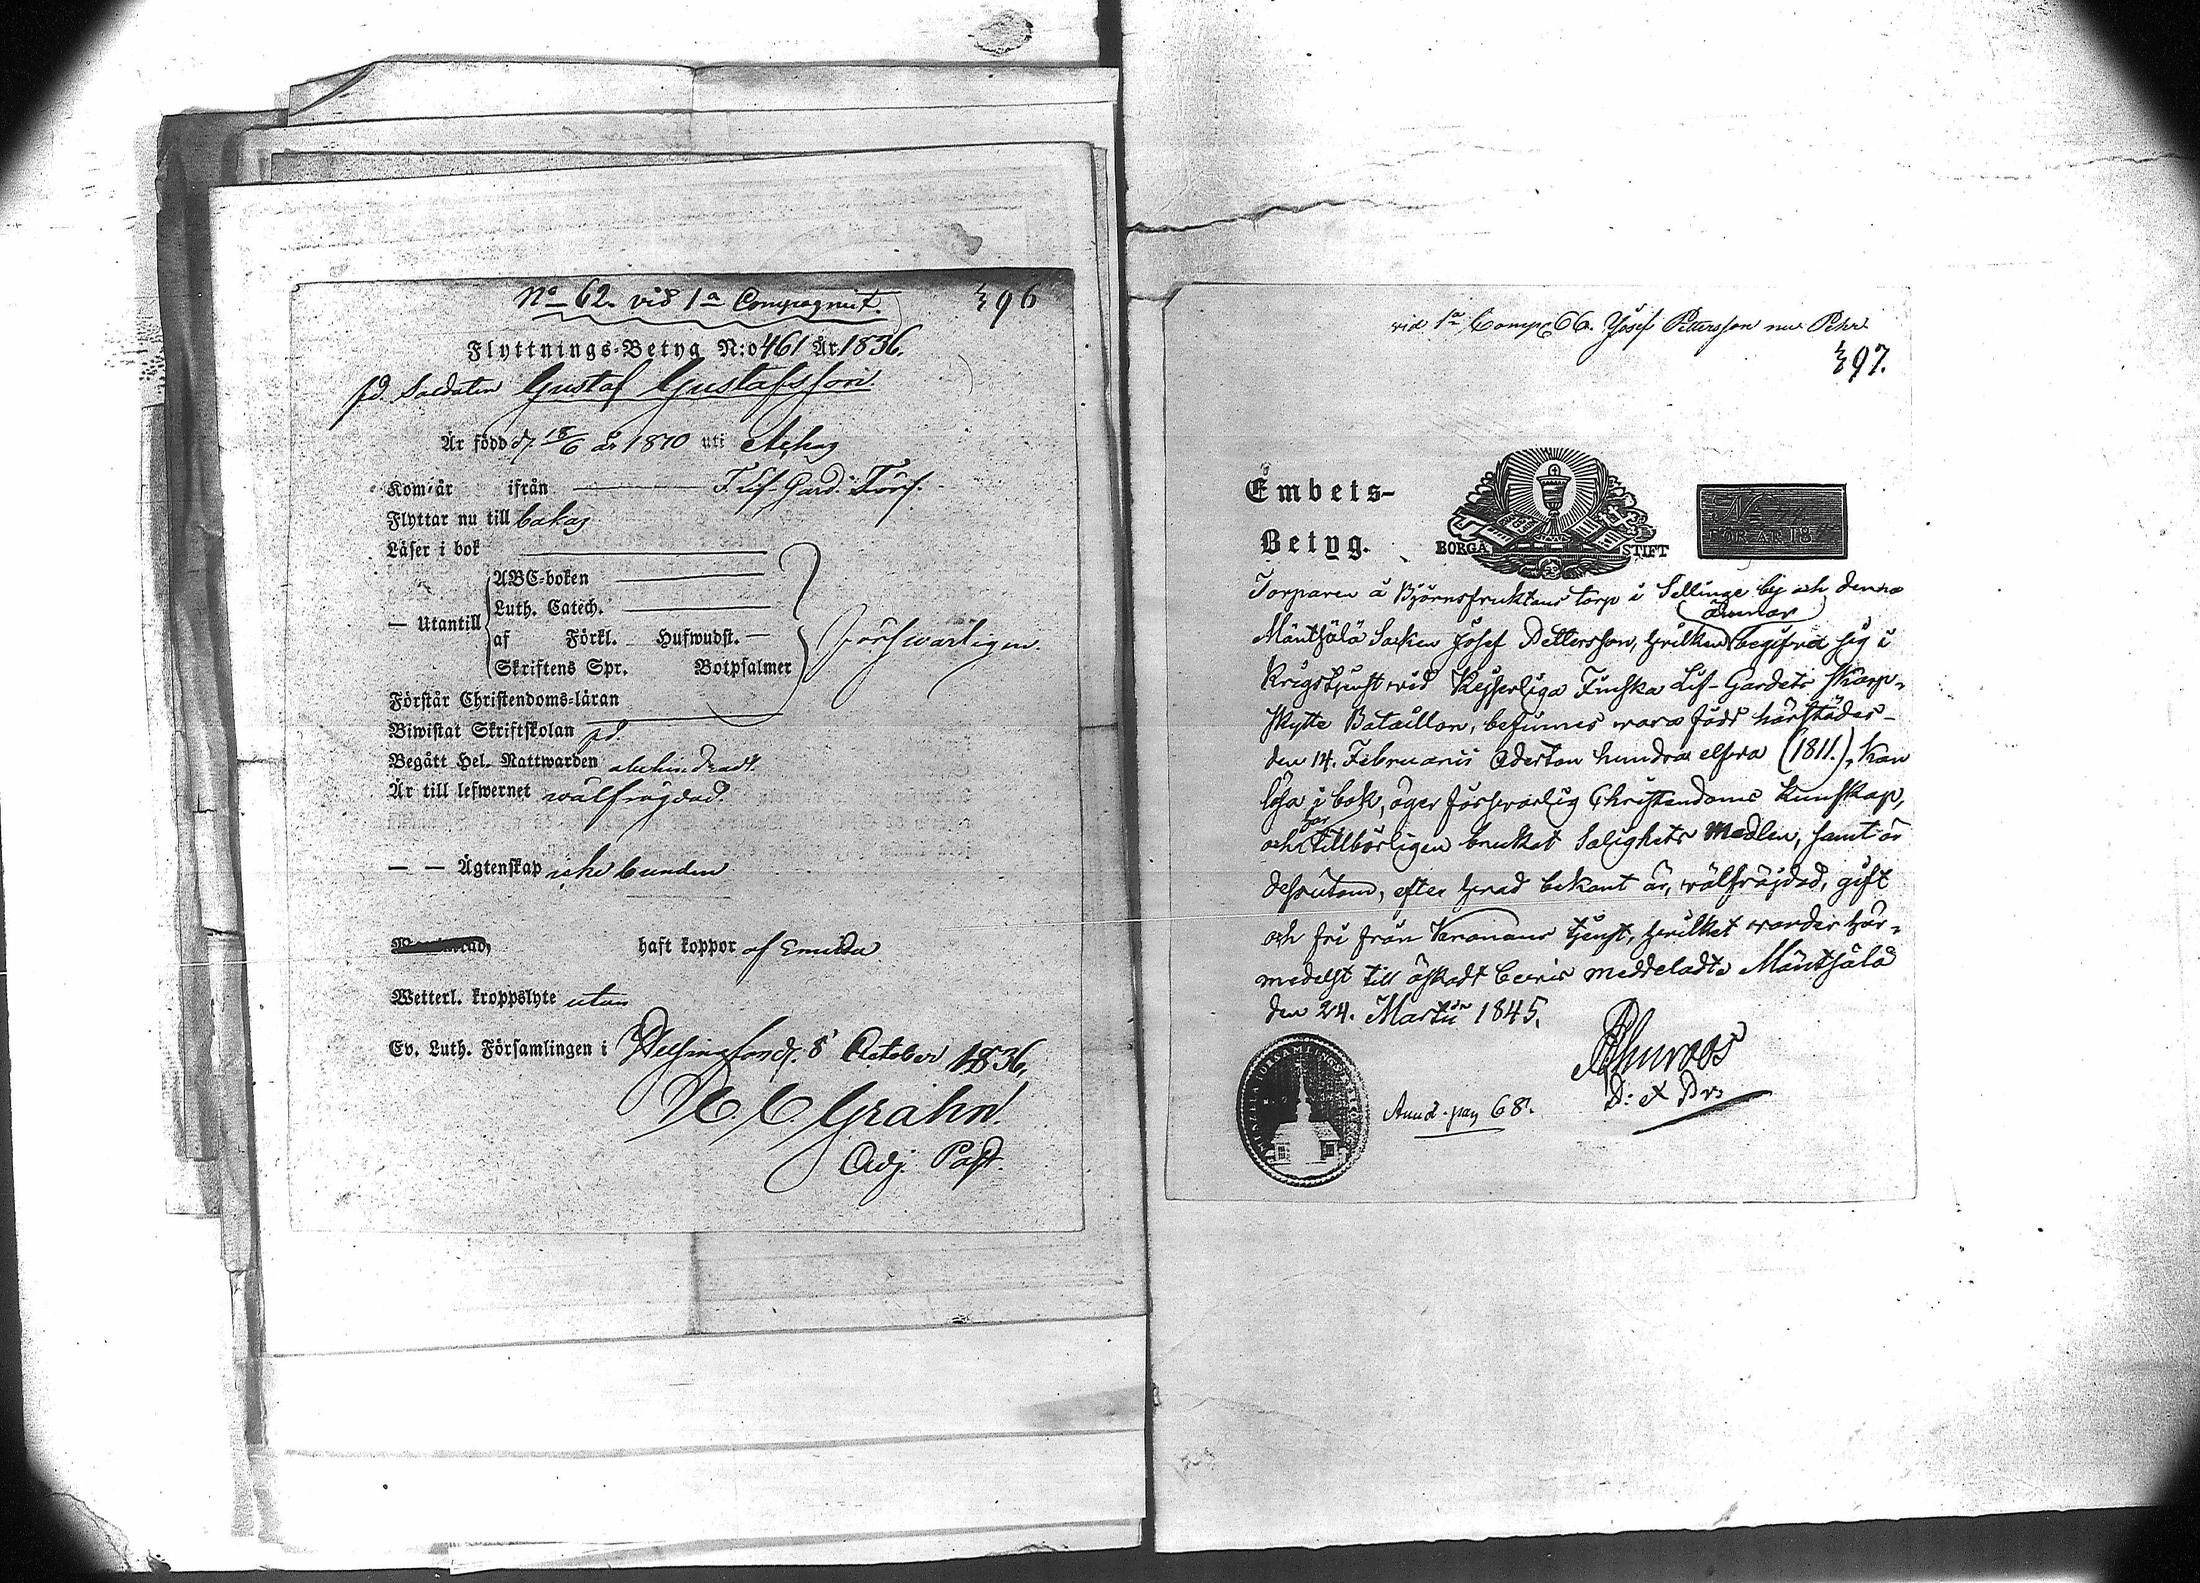 No 62. vid 1a Compagniet.
96
Flyttnings-Betyg N:o 461 År 1836.
fd. Soldaten Gustaf Gustafsson
Är född d. 18/6 år 1810 uti
Kom: år ifrån F. Lif-Gard. Förs.
Flyttar nu till
Läser i bok
ABC-boken
Luth. Catech.
— Utantill af Förkl. Hufwudst. —
försvarligen.
Skriftens Spr. Botpsalmer
Förstår Christendoms-läran
Biwistat Skriftskolan
Begått Hel. Nattwarden obehindradt.
Är till lefwernet wälfrägdad.
— — Ägtenskap icke bunden
haft koppor
Wetterl. kroppslyte utan
Ev. Luth. Församlingen i Helsingfors d. 8 October 1836.
Grahn.
Adj. Past.
vid 1a Comp. 66. Josef Pettersson nu Pehr
97.
Embets-
Betyg.
BORGÅ STIFT
No
FÖR ÅR 18
Torparen å Björnsfruktans torp i Sellinge by och denna
ämnar
Mäntsälä Socken Josef Pettersson, hvilken begifva sig i
Krigstjenst wid Kejserliga Finska Lif-Gardets Skarp-
skytte Bataillon, befinnes wara född härstädes
den 14. Februarii Aderton hundra elfva (1811.), kan
läsa i bok, äger försvarlig Christendoms kunskap,
har
och tillbörligen brukat Salighets Medlen, samt är
dessutom, efter hvad bekant är, wälfräjdad, gift
och fri från Kronans tjenst, hvilket warder här-
medelst till äskadt bevis meddeladt. Mäntsälä
den 24. Martii 1845.
D: et Pr:
pag 68.